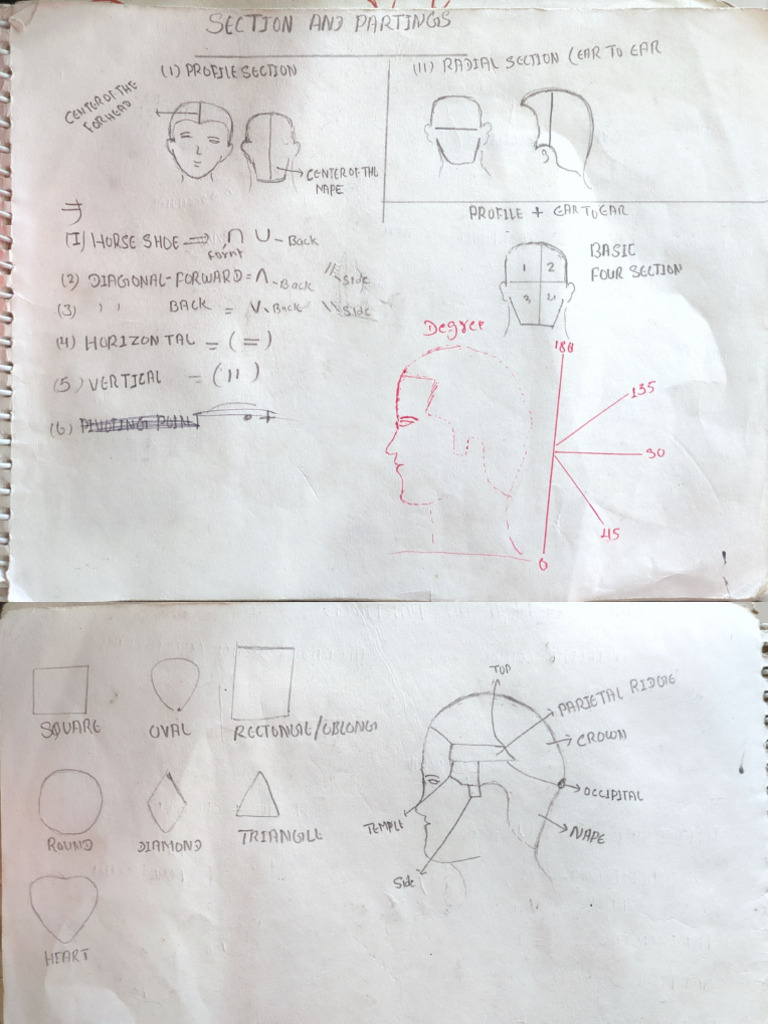 SECTION AND PARTINGS
(I) PROFILE SECTION
CENTER OF THE
FORHEAD
CENTER OF THE
NAPE
(II) RADIAL SECTION (EAR TO EAR
PROFILE + EAR TO EAR
BASIC
FOUR SECTION
1 2
3 4
(1) HORSE SHOE ⇒ ∩ ∪ - Back
Fornt
(2) DIAGONAL-FORWARD = Λ - Back // \\ Side
(3) ,, ,, BACK = V. Back \\ \\ Side
(4) HORIZONTAL = (=)
(5) VERTICAL = (II)
(6) PIVOTING POINT
Degree
180
135
90
45
0
SQUARE
OVAL
RECTONGLE/OBLONG
ROUND
DIAMOND
TRIANGLE
HEART
TOP
PARIETAL RIDGE
CROWN
OCCIPITAL
NAPE
TEMPLE
Side